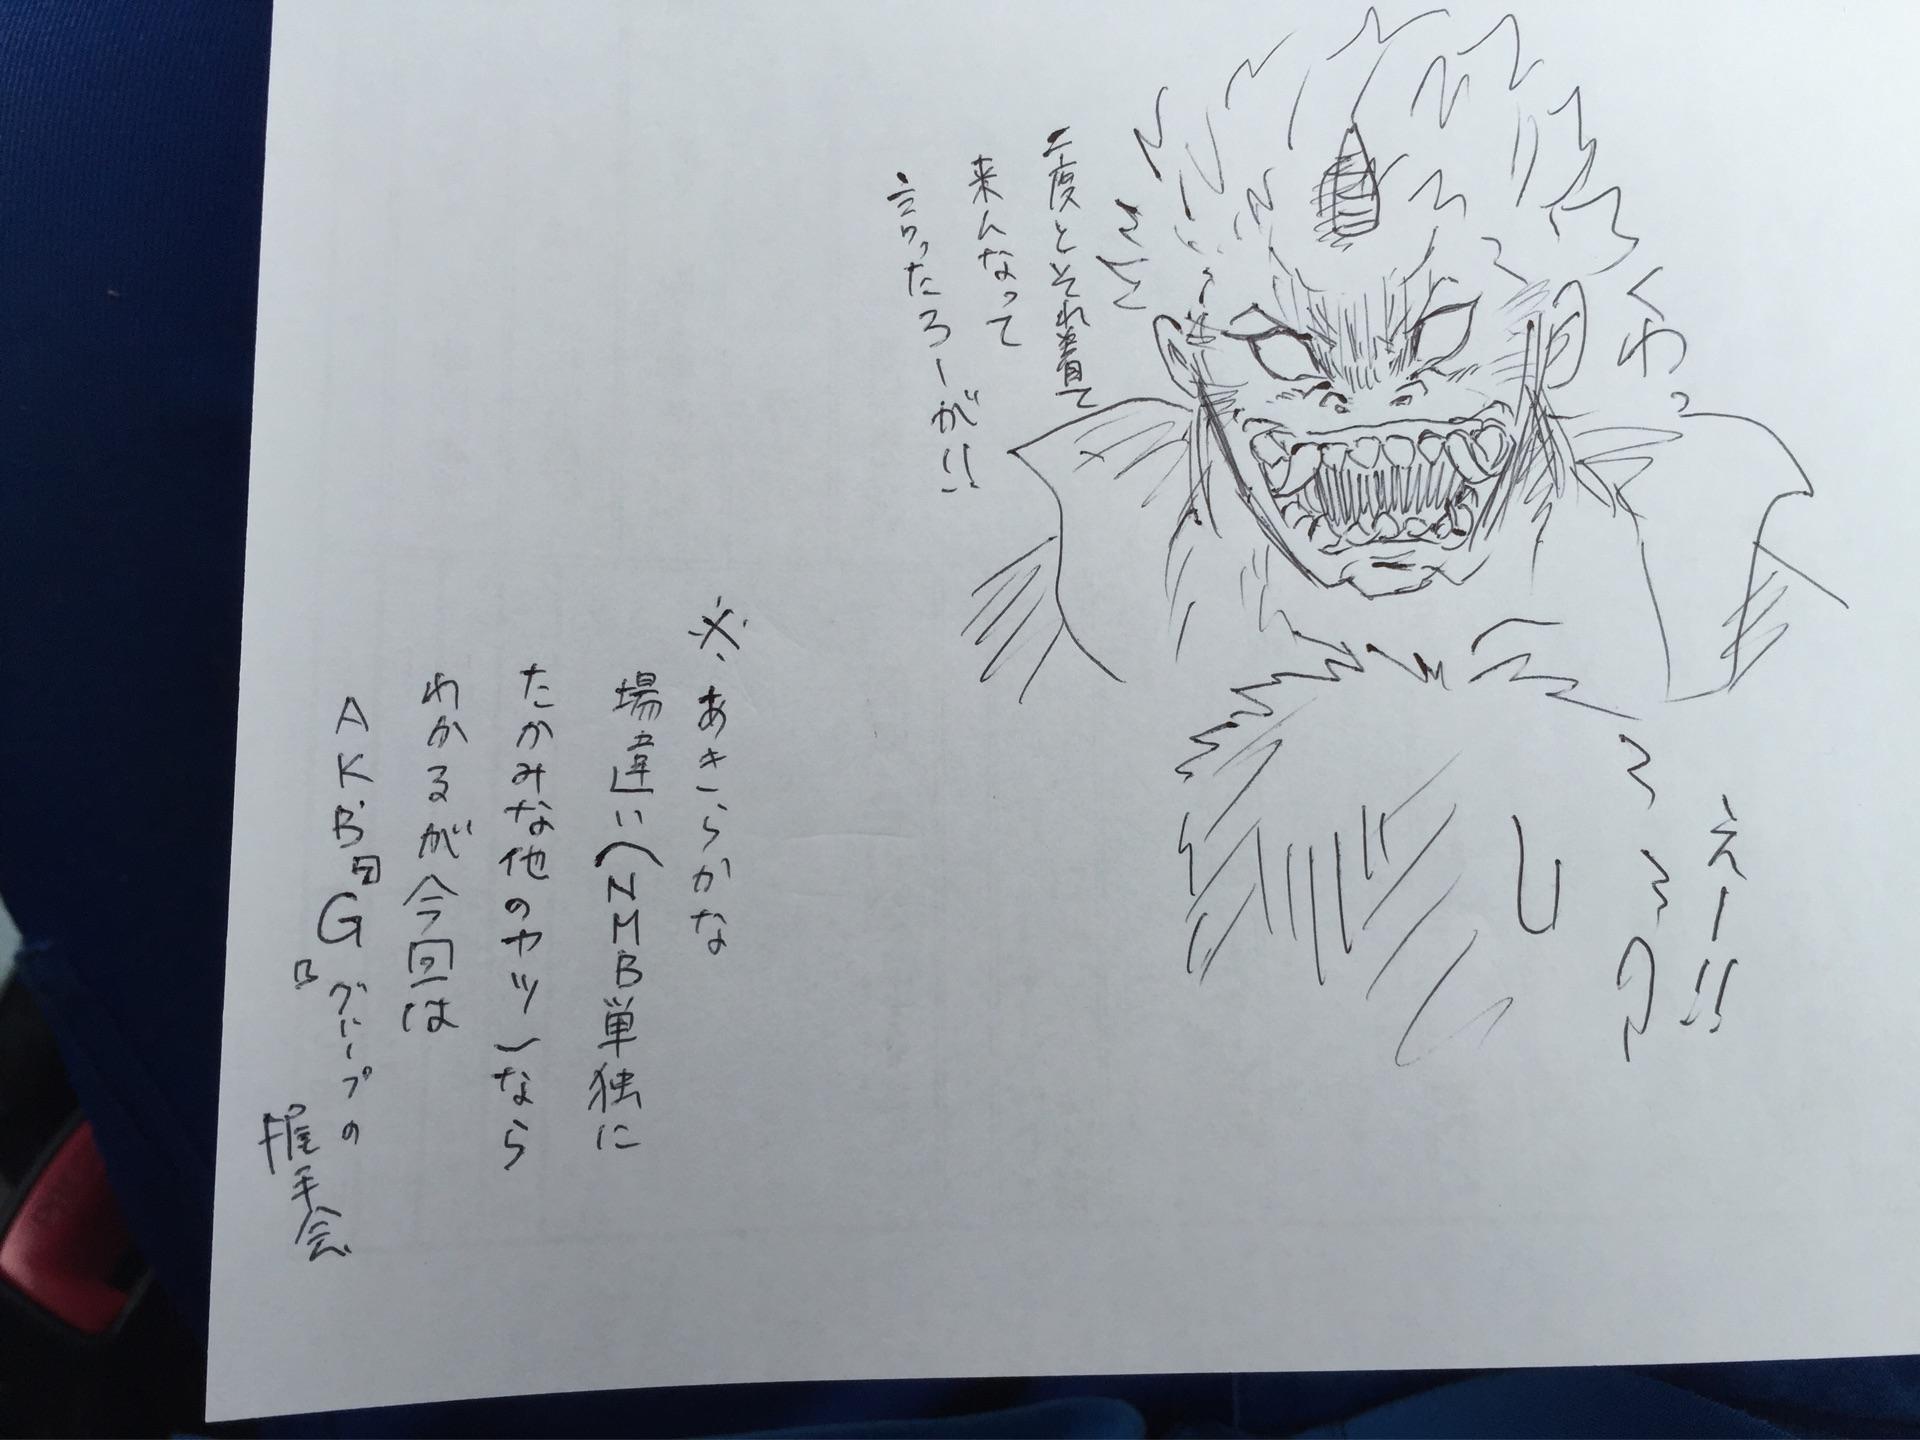 くわっ
二度とそれ着て
来んなって
言ったろーが!!
えー!!
※あきらかな
場違い(NMB単独に
たかみな他のヤツ)なら
わかるが今回は
AKB G グループの
握手会